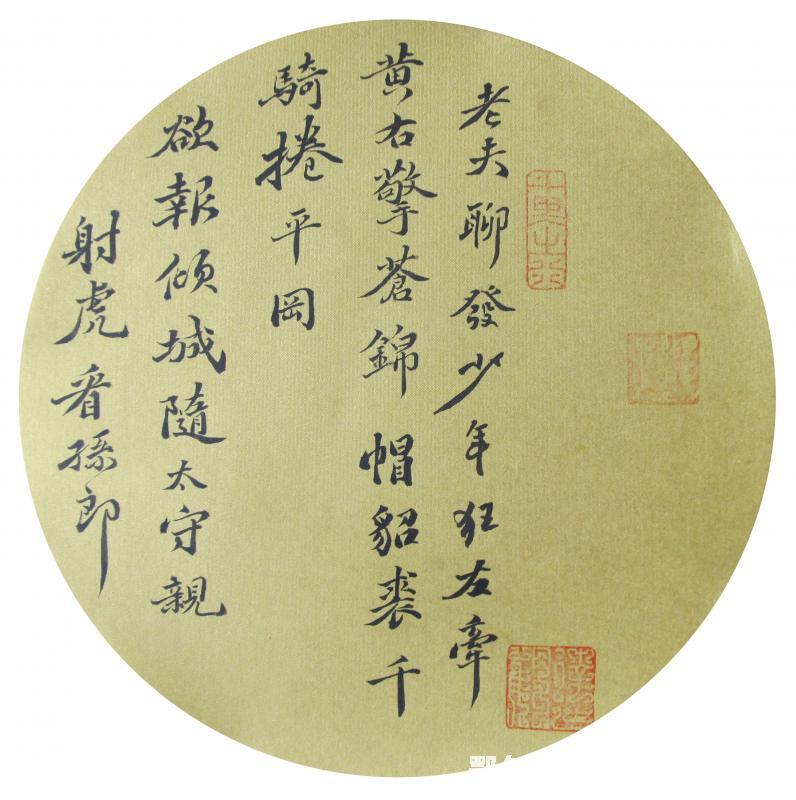 老夫聊發少年狂左牽
黄右擎蒼錦帽貂裘千
騎捲平岡
欲報傾城隨太守親
射虎看孫郎